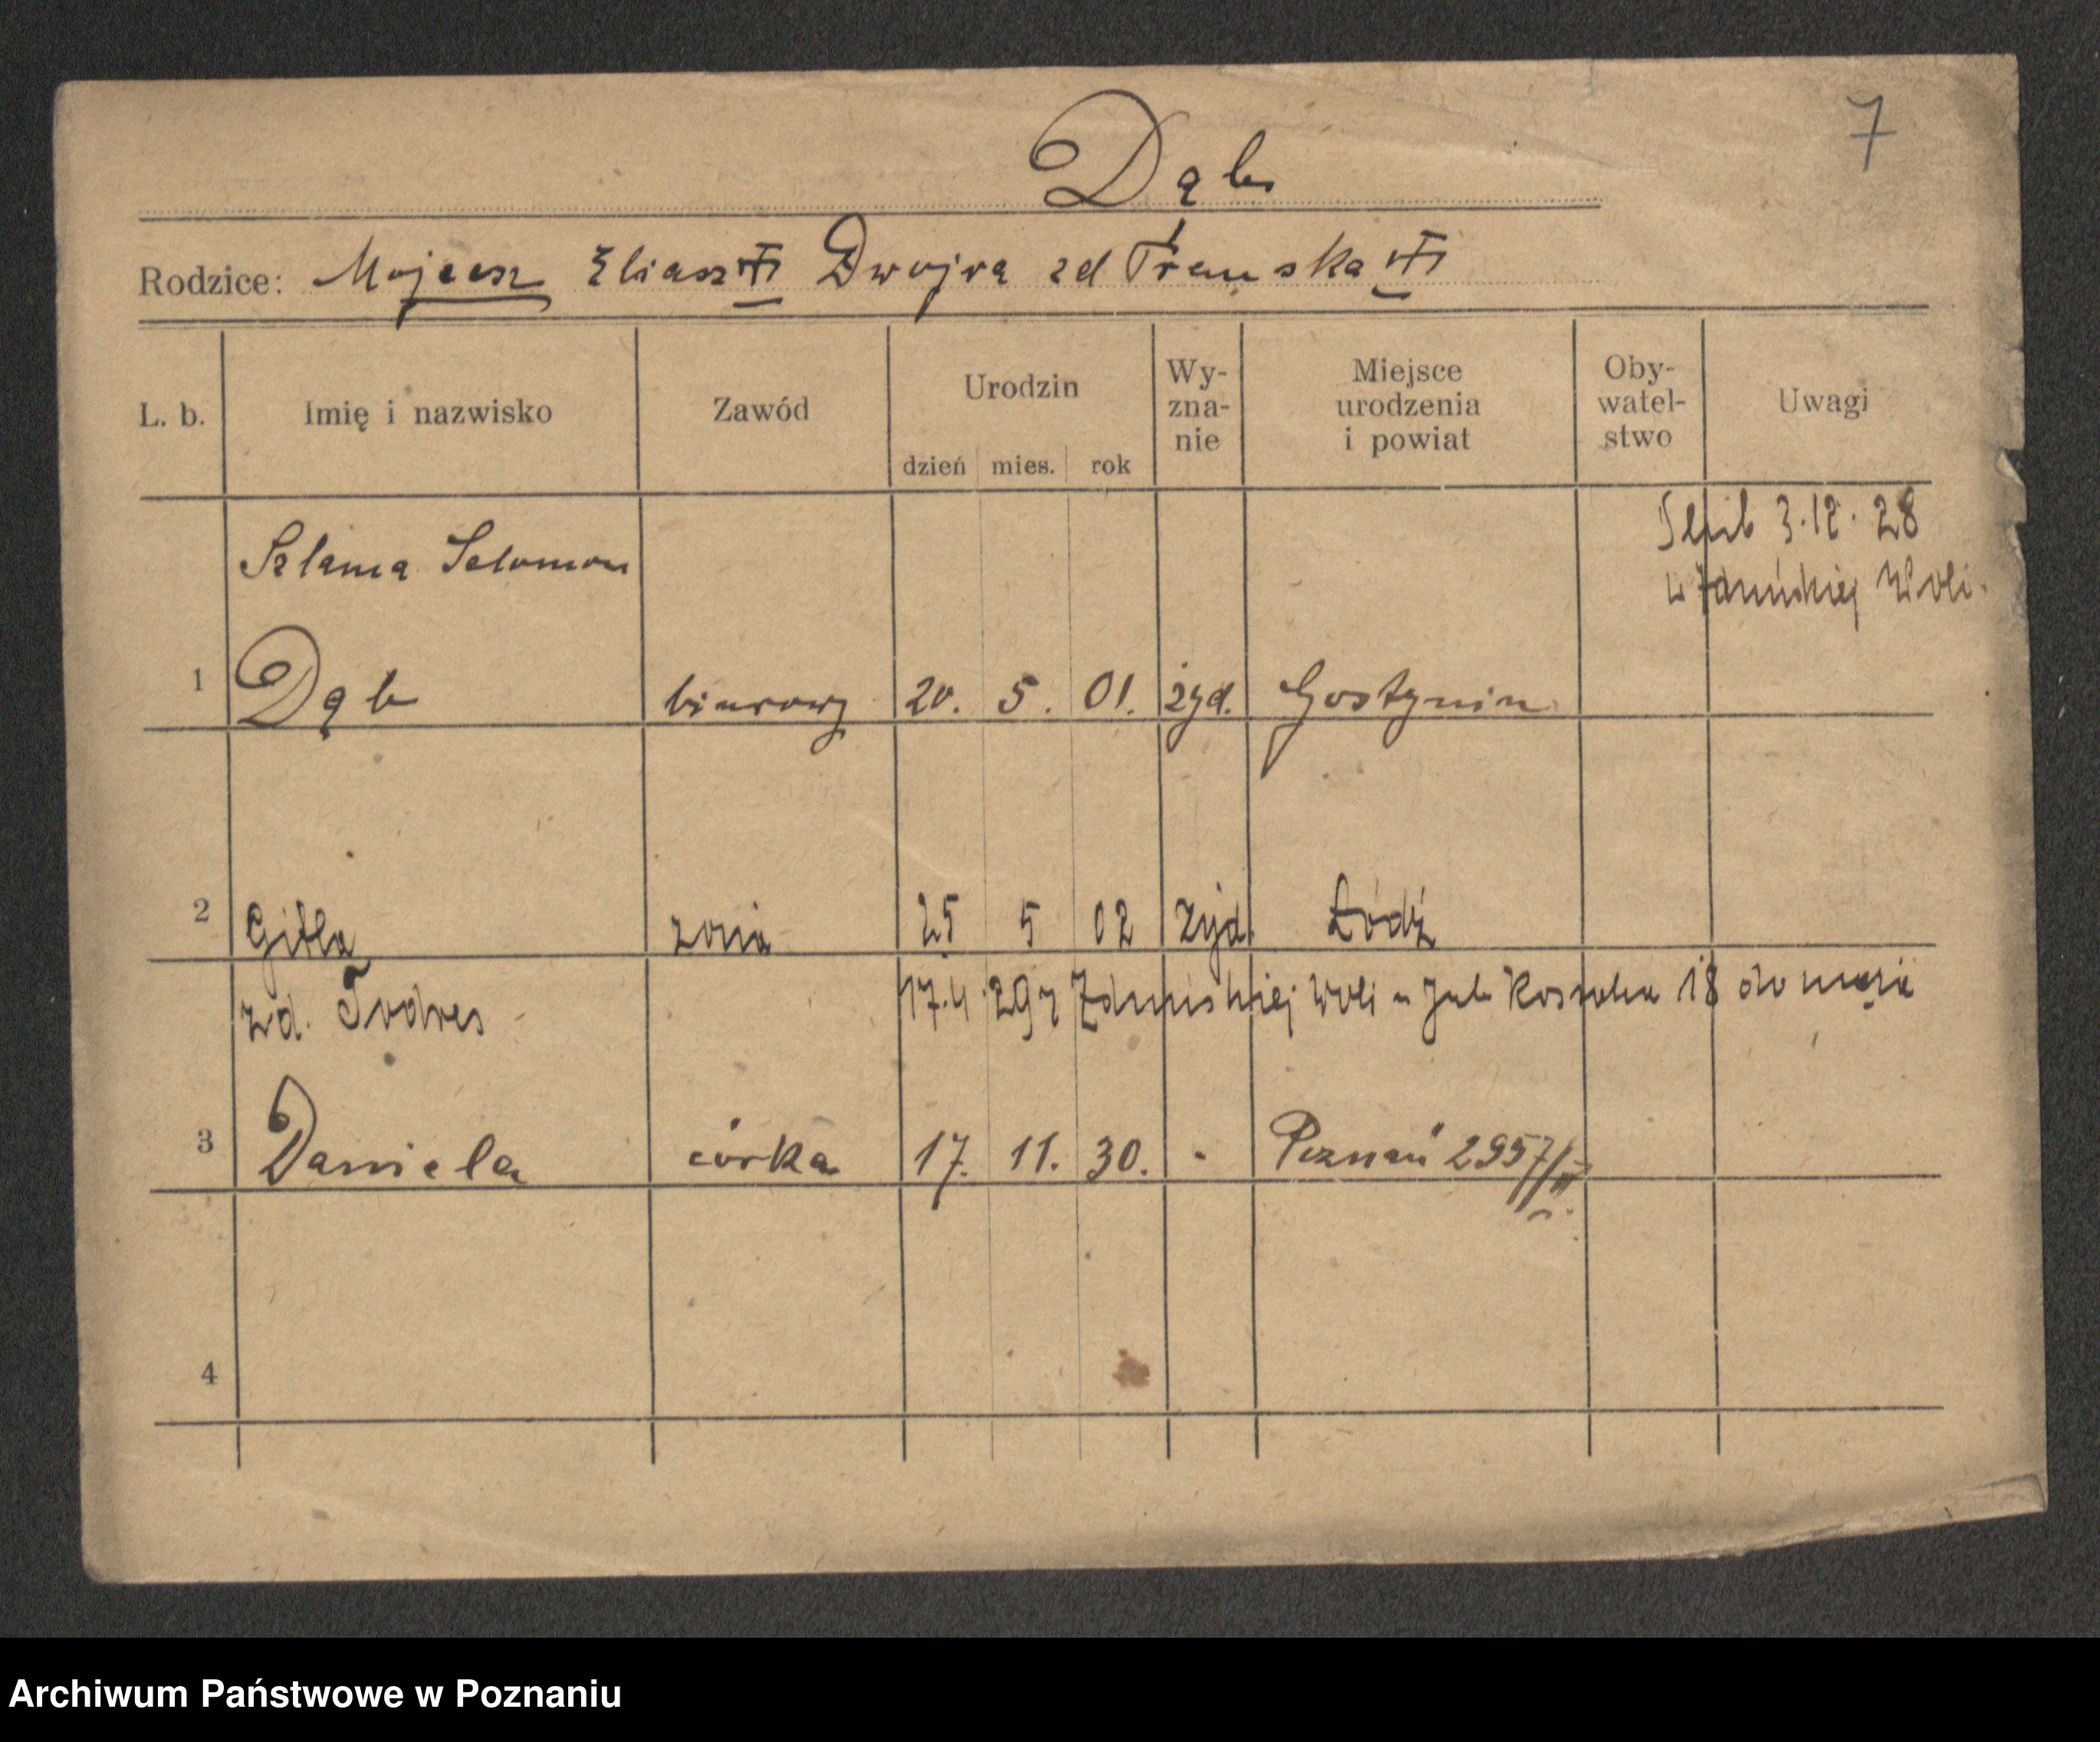 7
Dąb
Rodzice: Mojżesz Eliasz Dwojra zd
L. b. Imię i nazwisko Zawód Urodzin dzień mies. rok Wy-zna-nie Miejsce urodzenia i powiat Oby-watel-stwo Uwagi
Ślub 3.12.28
w Zduńskiej Woli.
Szlama Salomon
1 Dąb biurowy 20. 5. 01. żyd. Gostynin
2 Gitla żona 25 5 02 żyd. Łódź
zd. Todres 17.4.29 z Zduńskiej Woli 18 do męża
3 Daniela córka 17. 11. 30. " Poznań 2957/
4
Archiwum Państwowe w Poznaniu